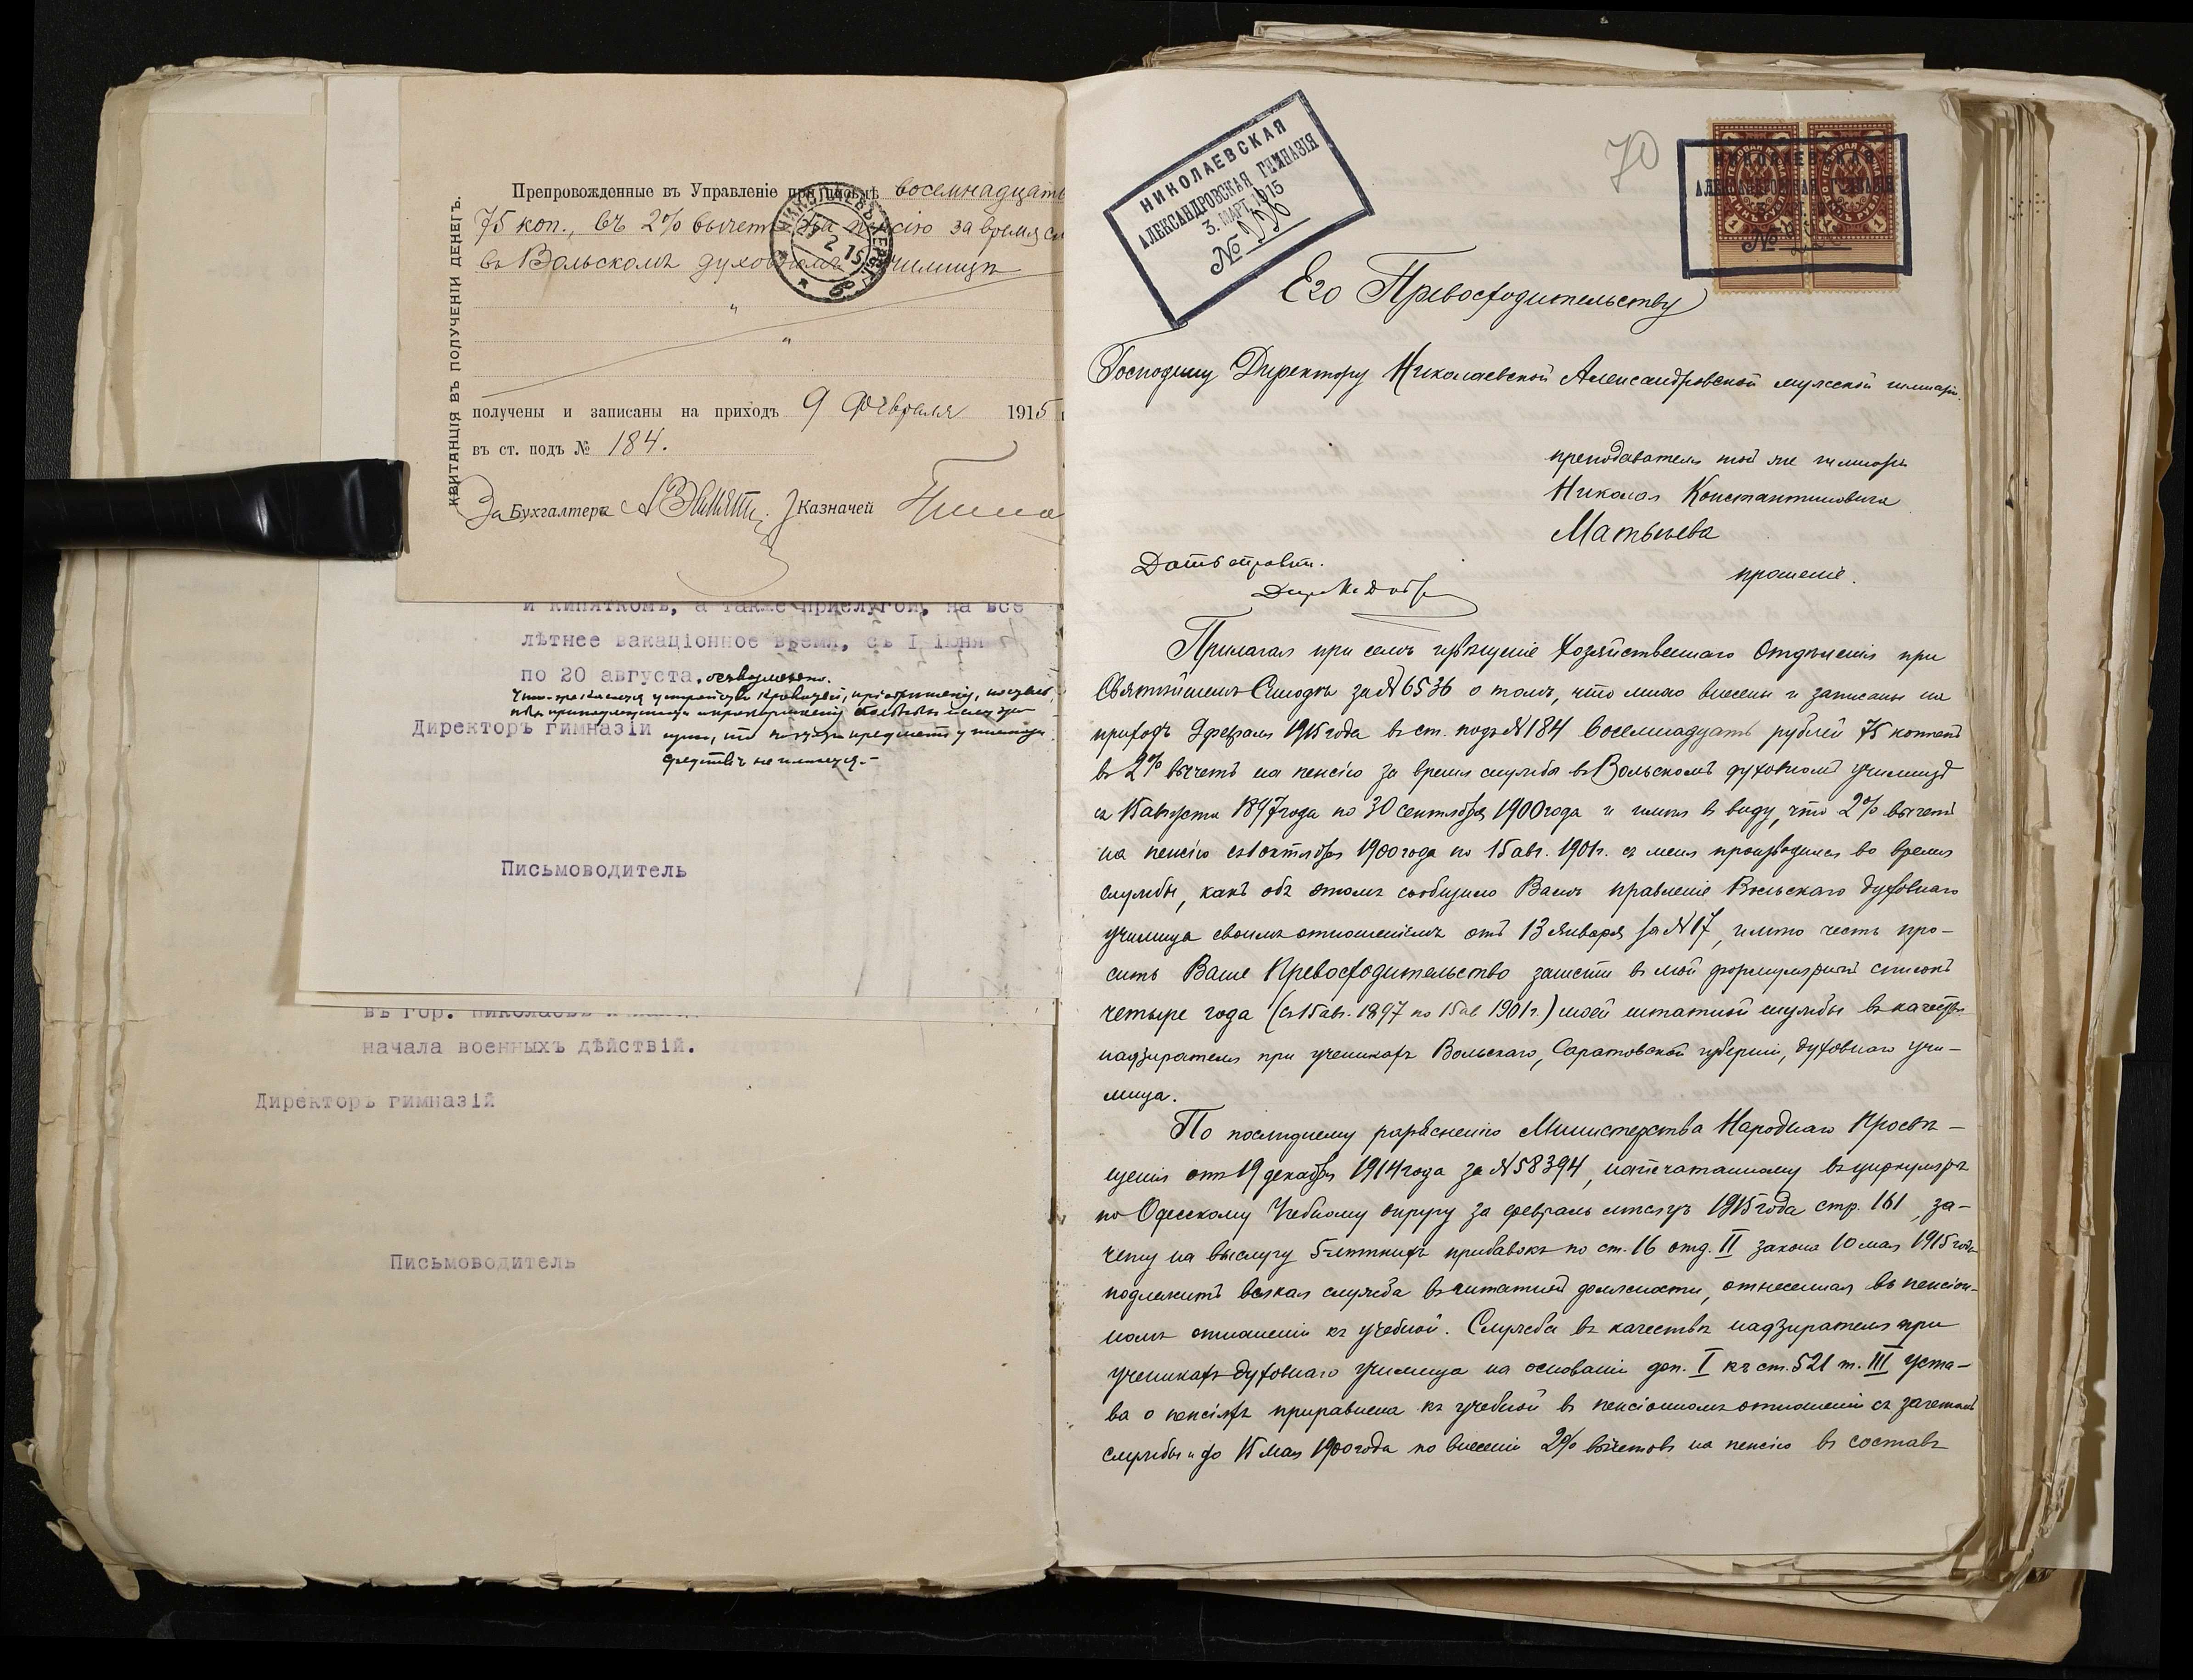 КВИТАНЦІЯ ВЪ ПОЛУЧЕНІИ ДЕНЕГЪ.
Препровожденные въ Управленіе при письмѣ восемнадцать
75 коп., въ 2% вычетъ на пенсію за время сл
въ Вольскомъ духовномъ училищѣ
получены и записаны на приходъ 9 Февраля 1915
въ ст. подъ № 184.
За Бухгалтера Казначей
и кипяткомъ, а также прислугой, на все
лѣтнее вакаціонное время, съ I іюня
по 20 августа,
Директоръ гимназіи
средствъ не имѣется.-
Письмоводитель
въ гор. Николаевѣ
начала военныхъ дѣйствій.
Директоръ гимназій
Письмоводитель
НИКОЛАЕВСКАЯ
АЛЕКСАНДРОВСКАЯ ГИМНАЗІЯ
3. МАРТ. 1915
№
70
НИКОЛАЕВСКАЯ
АЛЕКСАНДРОВСКАЯ ГИМНАЗІЯ
№
Его Превосходительству
Господину Директору Николаевской Александровской мужской гимназіи.
преподавателя той же гимназіи
Николая Константиновича
Матвѣева
прошеніе.
Прилагая при семъ извѣщеніе Хозяйственнаго Отдѣленія при
Святѣйшемъ Синодѣ за № 6536 о томъ, что мною внесены и записаны на
приходъ 9 февраля 1915 года въ ст. подъ № 184 восемнадцать рублей 75 копѣекъ
въ 2% вычетъ на пенсію за время службы въ Вольскомъ духовномъ училищѣ
съ 15 августа 1897 года по 30 сентября 1900 года и имѣя въ виду, что 2% вычетъ
на пенсію съ 1 октября 1900 года по 15 авг. 1901 г. съ меня производился во время
службы, какъ объ этомъ сообщило Вамъ правленіе Вольскаго духовнаго
училища своимъ отношеніемъ отъ 13 января за № 17, имѣю честь про-
сить Ваше Превосходительство занести въ мой формулярный списокъ
четыре года (съ 15 авг. 1897 по 15 ав 1901 г.) моей штатной службы въ качествѣ
надзирателя при ученикахъ Вольскаго, Саратовской губерніи, духовнаго учи-
лища.
По послѣднему разъясненію Министерства Народнаго Просвѣ-
щенія отъ 19 декабря 1914 года за № 58394, напечатанному въ циркулярѣ
по Одесскому Учебному округу за февраль мѣсяцъ 1915 года стр. 161, за-
чету на выслугу 5-лѣтнихъ прибавокъ по ст. 16 отд. II закона 10 мая 1915 года
подлежитъ всякая служба въ штатной должности, отнесенная въ пенсіон-
номъ отношеніи къ учебной. Служба въ качествѣ надзирателя при
ученикахъ духовнаго училища на основаніи доп. I къ ст. 521 т. III Уста-
ва о пенсіяхъ приравнена къ учебной въ пенсіонномъ отношеніи съ зачетомъ
службы и до 15 мая 1900 года по внесеніи 2% вычетовъ на пенсію въ составъ